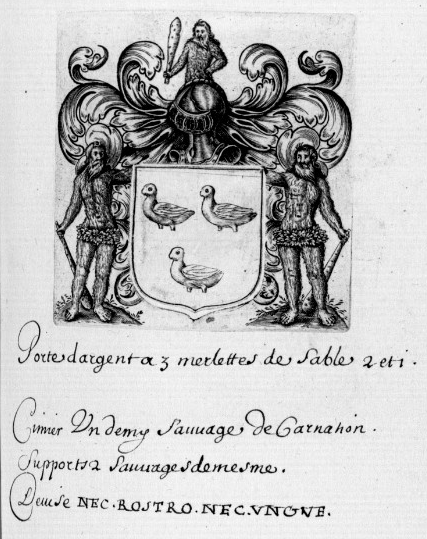 Porte dargent a 3 merlettes de Sable 2 et 1.
Cimier Un demy Sauuage de Carnation.
Supports 2 Sauuages demesme.
Deuise NEC. ROSTRO. NEC. VNGVE.